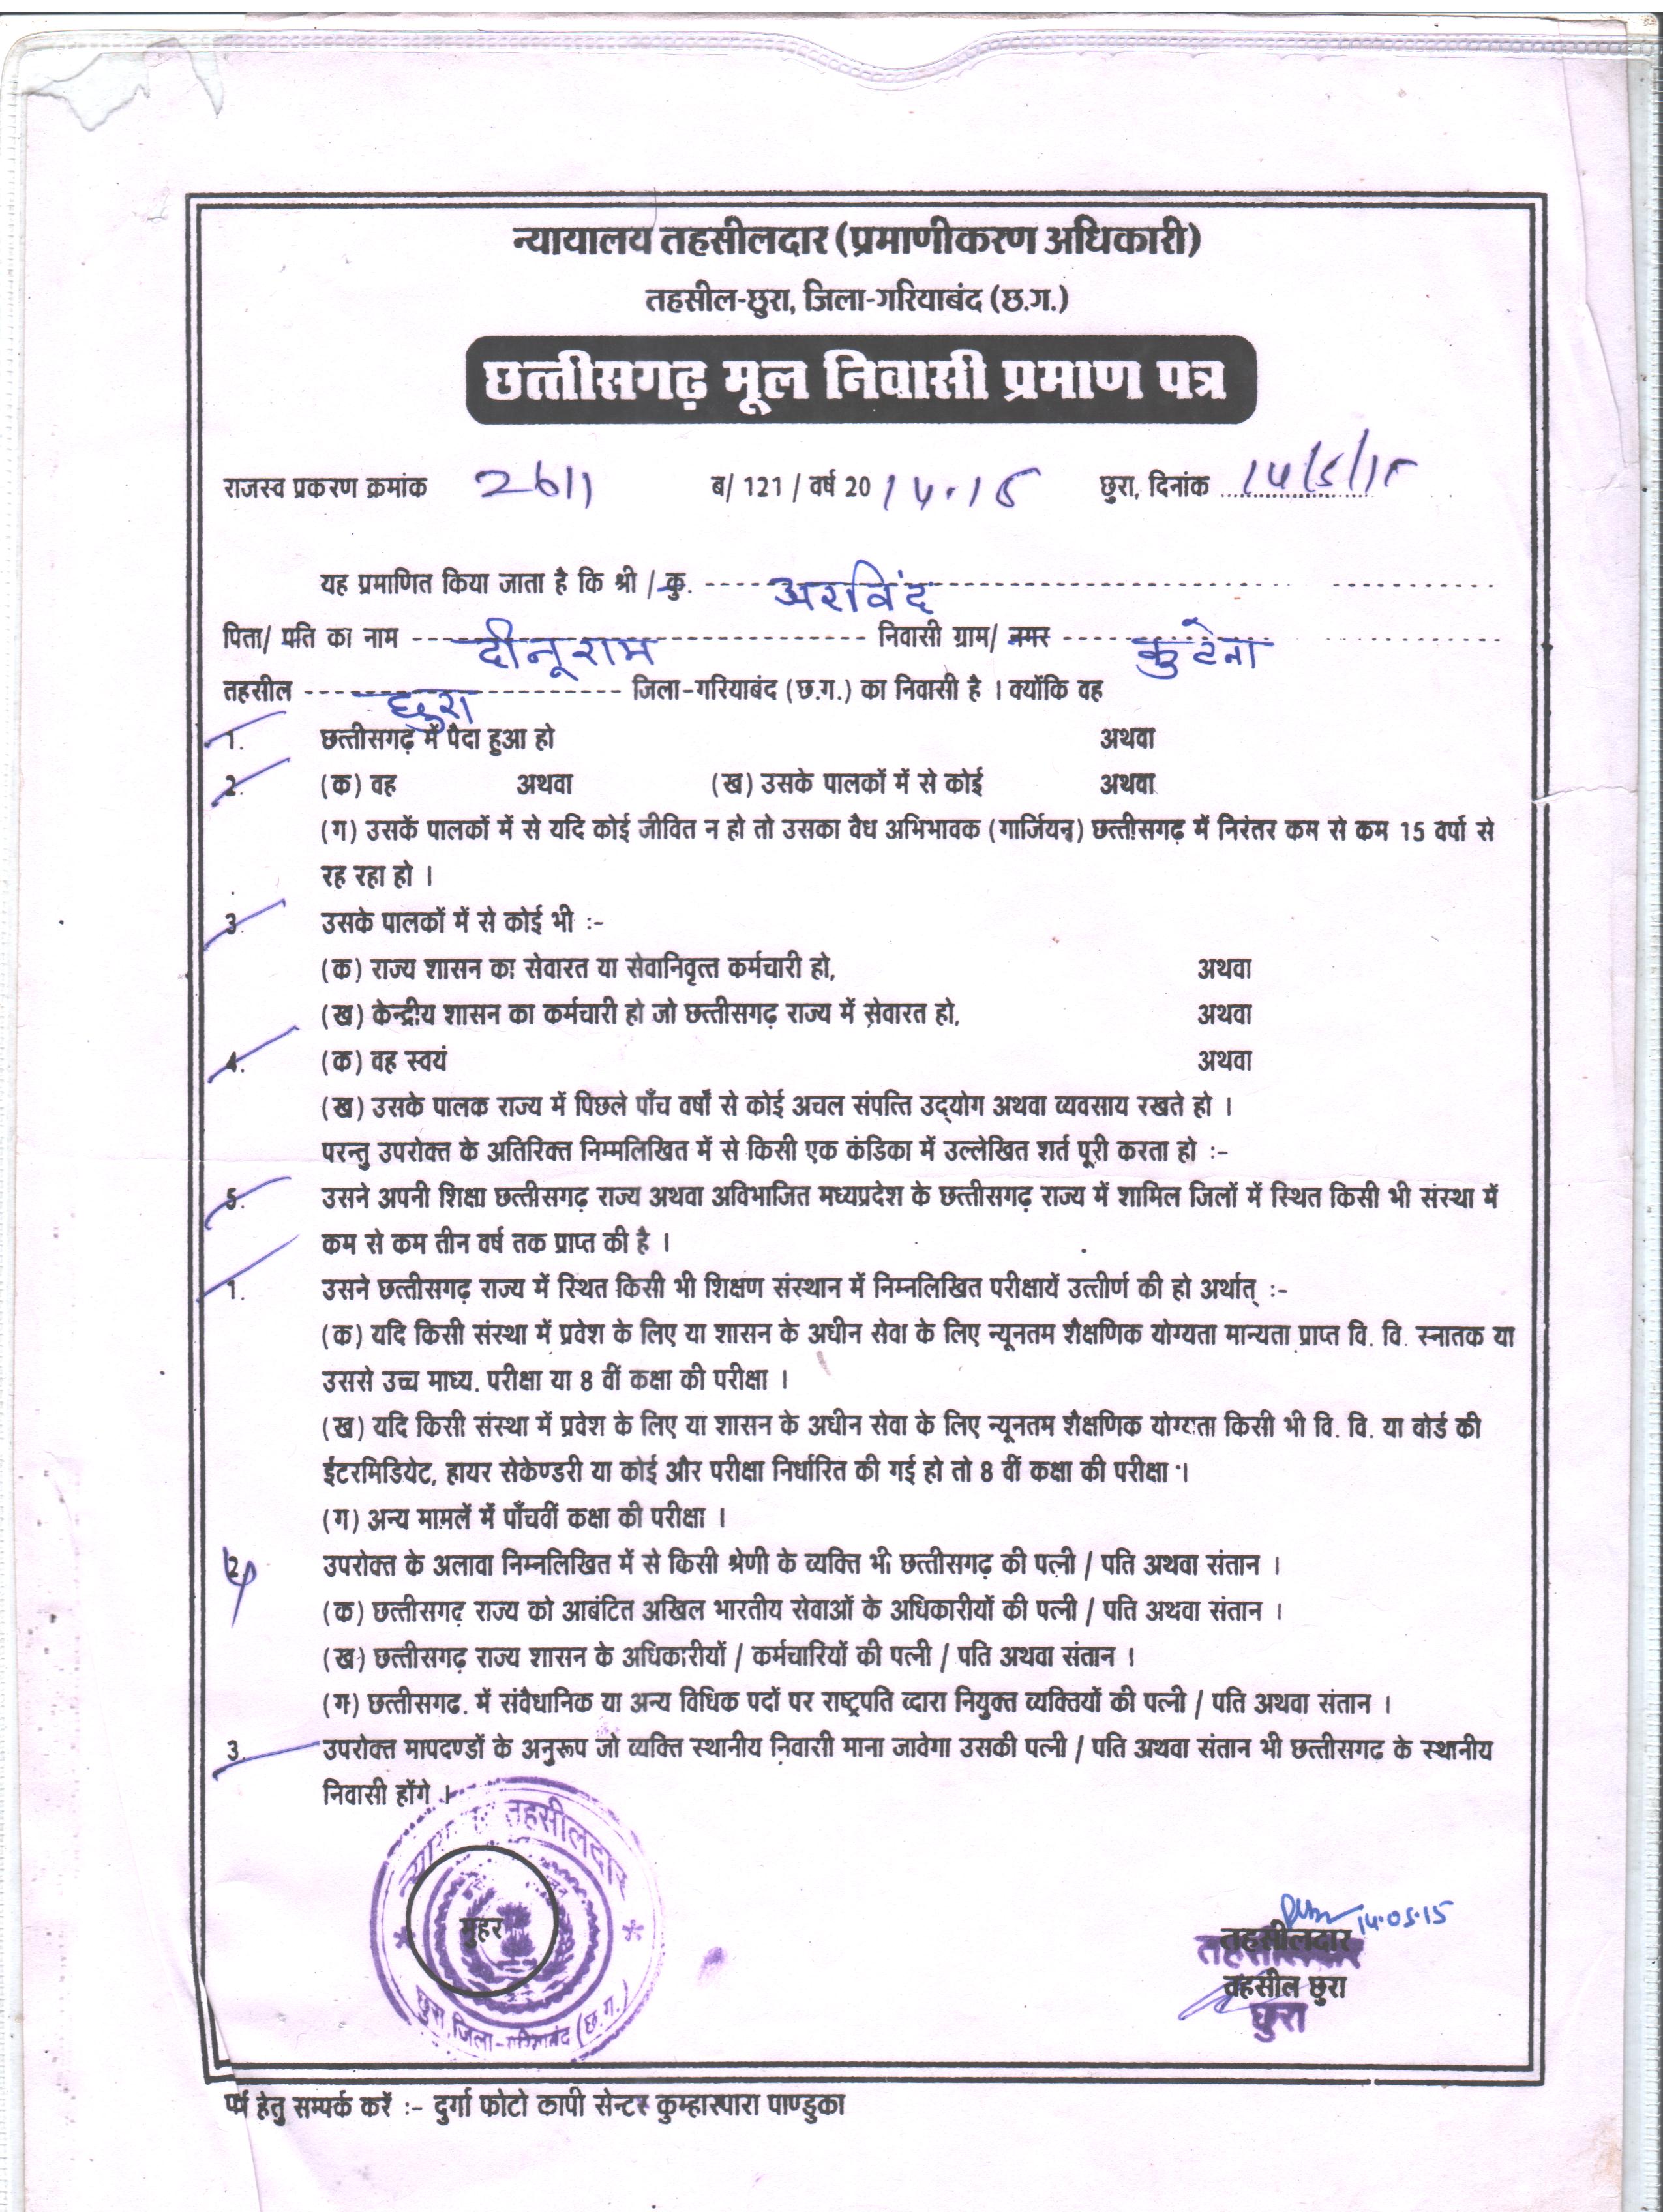 न्यायालय तहसीलदार (प्रमाणीकरण अधिकारी)
तहसील-छुरा, जिला-गरियाबंद (छ.ग.)
छत्तीसगढ़ मूल निवासी प्रमाण पत्र
राजस्व प्रकरण क्रमांक 2611 ब/ 121 / वर्ष 2014-15 छुरा, दिनांक 14/5/15
यह प्रमाणित किया जाता है कि श्री / कु. अरविंद
पिता/ पति का नाम दीनूराम निवासी ग्राम/ नगर कुटेना
तहसील छुरा जिला-गरियाबंद (छ.ग.) का निवासी है । क्योंकि वह
1. छत्तीसगढ़ में पैदा हुआ हो अथवा
2. (क) वह अथवा (ख) उसके पालकों में से कोई अथवा
(ग) उसकें पालकों में से यदि कोई जीवित न हो तो उसका वैध अभिभावक (गार्जियन) छत्तीसगढ़ में निरंतर कम से कम 15 वर्षो से
रह रहा हो ।
3 उसके पालकों में से कोई भी :-
(क) राज्य शासन का सेवारत या सेवानिवृत्त कर्मचारी हो, अथवा
(ख) केन्द्रीय शासन का कर्मचारी हो जो छत्तीसगढ़ राज्य में सेवारत हो, अथवा
4. (क) वह स्वयं अथवा
(ख) उसके पालक राज्य में पिछले पाँच वर्षों से कोई अचल संपत्ति उद्योग अथवा व्यवसाय रखते हो ।
परन्तु उपरोक्त के अतिरिक्त निम्मलिखित में से किसी एक कंडिका में उल्लेखित शर्त पूरी करता हो :-
5. उसने अपनी शिक्षा छत्तीसगढ़ राज्य अथवा अविभाजित मध्यप्रदेश के छत्तीसगढ़ राज्य में शामिल जिलों में स्थित किसी भी संस्था में
कम से कम तीन वर्ष तक प्राप्त की है ।
1. उसने छत्तीसगढ़ राज्य में स्थित किसी भी शिक्षण संस्थान में निम्नलिखित परीक्षायें उत्तीर्ण की हो अर्थात् :-
(क) यदि किसी संस्था में प्रवेश के लिए या शासन के अधीन सेवा के लिए न्यूनतम शैक्षणिक योग्यता मान्यता प्राप्त वि. वि. स्नातक या
उससे उच्च माध्य. परीक्षा या 8 वीं कक्षा की परीक्षा ।
(ख) यदि किसी संस्था में प्रवेश के लिए या शासन के अधीन सेवा के लिए न्यूनतम शैक्षणिक योग्यता किसी भी वि. वि. या बोर्ड की
ईंटरमिडियेट, हायर सेकेण्डरी या कोई और परीक्षा निर्धारित की गई हो तो 8 वीं कक्षा की परीक्षा ।
(ग) अन्य मामलें में पाँचवीं कक्षा की परीक्षा ।
2. उपरोक्त के अलावा निम्नलिखित में से किसी श्रेणी के व्यक्ति भी छत्तीसगढ़ की पत्नी / पति अथवा संतान ।
(क) छत्तीसगढ़ राज्य को आबंटित अखिल भारतीय सेवाओं के अधिकारीयों की पत्नी / पति अथवा संतान ।
(ख) छत्तीसगढ़ राज्य शासन के अधिकारीयों / कर्मचारियों की पत्नी / पति अथवा संतान ।
(ग) छत्तीसगढ. में संवैधानिक या अन्य विधिक पदों पर राष्ट्रपति व्दारा नियुक्त व्यक्तियों की पत्नी / पति अथवा संतान ।
3. उपरोक्त मापदण्डों के अनुरूप जो व्यक्ति स्थानीय निवासी माना जावेगा उसकी पत्नी / पति अथवा संतान भी छत्तीसगढ़ के स्थानीय
निवासी होंगे ।
तहसीलदार
मुहर
छुरा, जिला-गरियाबंद (छ.ग.)
14.05.15
तहसीलदार
तहसीलदार
तहसील छुरा
छुरा
फार्म हेतु सम्पर्क करें :- दुर्गा फोटो कापी सेन्टर कुम्हारपारा पाण्डुका